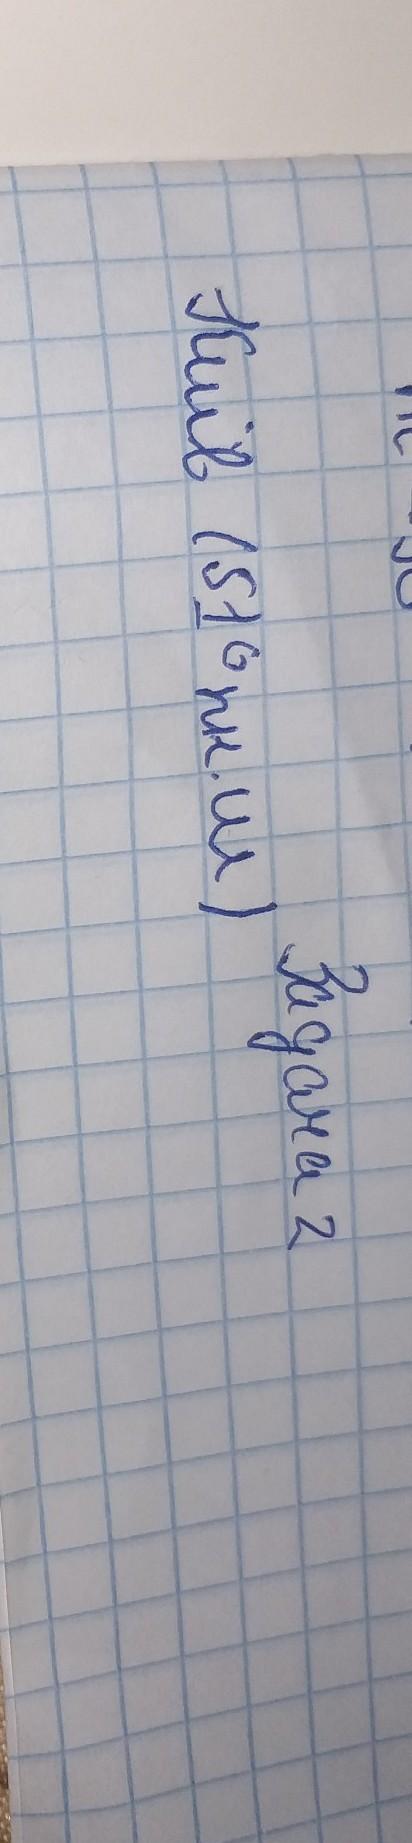 Задача 2
Київ (51° пн.ш)